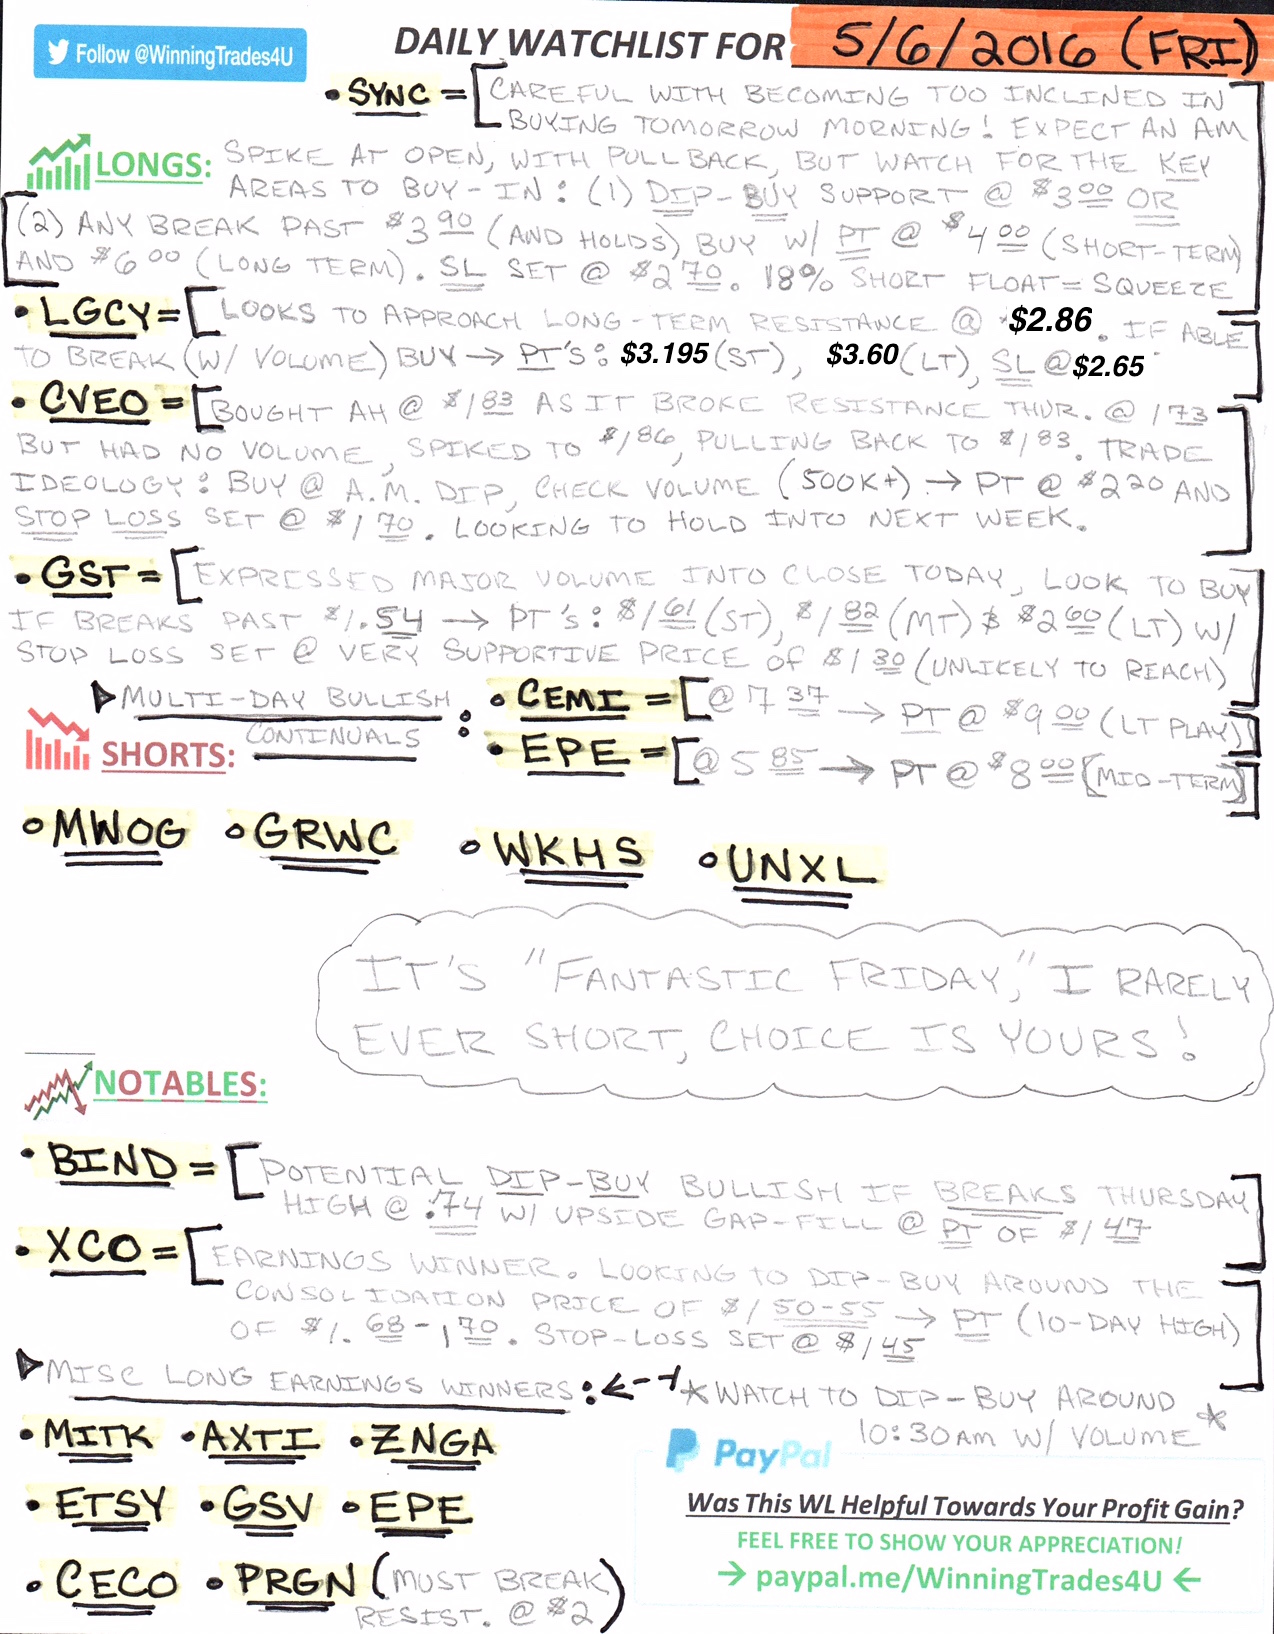 Follow @WinningTrades4U
DAILY WATCHLIST FOR 5/6/2016 (FRI)
• SYNC = [CAREFUL WITH BECOMING TOO INCLINED IN
BUYING TOMORROW MORNING! EXPECT AN AM
LONGS: SPIKE AT OPEN, WITH PULLBACK, BUT WATCH FOR THE KEY
AREAS TO BUY-IN: (1) DIP-BUY SUPPORT @ $3.00 OR
(2) ANY BREAK PAST $3.90 (AND HOLDS) BUY W/ PT @ $4.00 (SHORT-TERM)
AND $6.00 (LONG TERM). SL SET @ $2.70. 18% SHORT FLOAT = SQUEEZE]
• LGCY = [LOOKS TO APPROACH LONG-TERM RESISTANCE @ $2.86. IF ABLE
TO BREAK (W/ VOLUME) BUY → PT'S: $3.195 (ST), $3.60 (LT), SL @ $2.65]
• CVEO = [BOUGHT AH @ $1.83 AS IT BROKE RESISTANCE THUR. @ 1.73
BUT HAD NO VOLUME, SPIKED TO $1.86, PULLING BACK TO $1.83. TRADE
IDEOLOGY: BUY @ A.M. DIP, CHECK VOLUME (500K+) → PT @ $2.20 AND
STOP LOSS SET @ $1.70. LOOKING TO HOLD INTO NEXT WEEK.]
• GST = [EXPRESSED MAJOR VOLUME INTO CLOSE TODAY, LOOK TO BUY
IF BREAKS PAST $1.54 → PT'S: $1.61 (ST), $1.82 (MT) & $2.60 (LT) W/
STOP LOSS SET @ VERY SUPPORTIVE PRICE OF $1.30 (UNLIKELY TO REACH)]
▶ MULTI-DAY BULLISH CONTINUALS :
• CEMI = [@ 7.37 → PT @ $9.00 (LT PLAY)]
• EPE = [@ 5.85 → PT @ $8.00 (MID-TERM)]
SHORTS:
• MWOG • GRWC • WKHS • UNXL
IT'S "FANTASTIC FRIDAY," I RARELY
EVER SHORT, CHOICE IS YOURS!
NOTABLES:
• BIND = [POTENTIAL DIP-BUY BULLISH IF BREAKS THURSDAY
HIGH @ .74 W/ UPSIDE GAP-FILL @ PT OF $1.47]
• XCO = [EARNINGS WINNER. LOOKING TO DIP-BUY AROUND THE
CONSOLIDATION PRICE OF $1.50-55 → PT (10-DAY HIGH)
OF $1.68-1.70. STOP-LOSS SET @ $1.45]
▶ MISC LONG EARNINGS WINNERS: ← * WATCH TO DIP-BUY AROUND
10:30AM W/ VOLUME *
• MITK • AXTI • ZNGA
• ETSY • GSV • EPE
• CECO • PRGN (MUST BREAK
RESIST. @ $2)
PayPal
Was This WL Helpful Towards Your Profit Gain?
FEEL FREE TO SHOW YOUR APPRECIATION!
→ paypal.me/WinningTrades4U ←